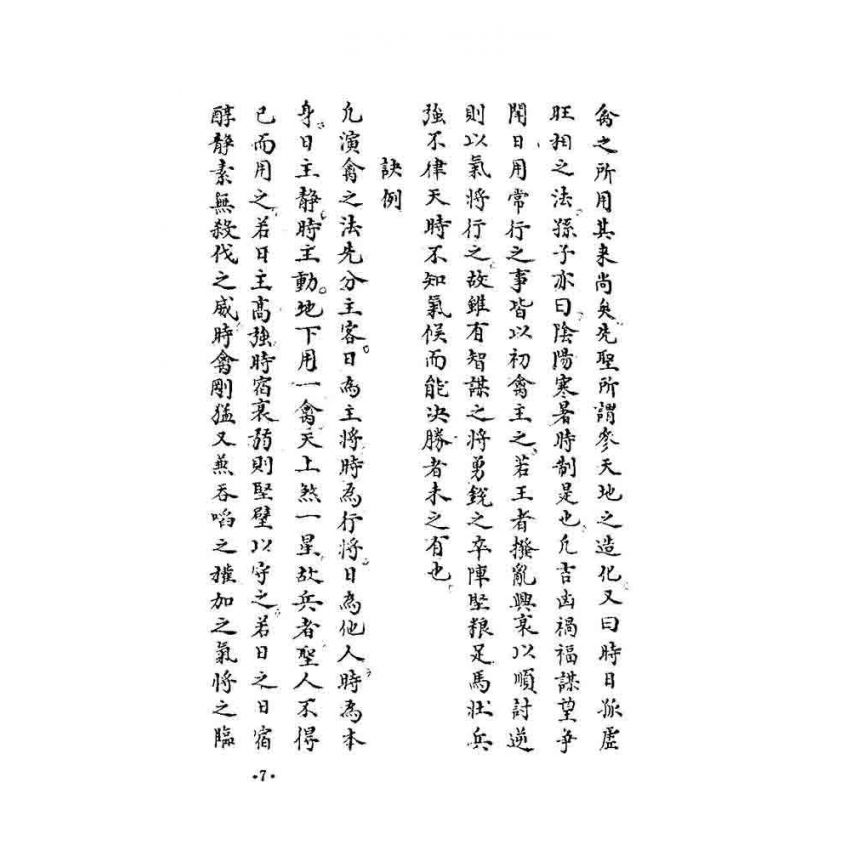 禽之所用其来尚矣先聖所謂參天地之造化又曰時日孤虛
旺相之法孫子亦曰陰陽寒暑時制是也凢吉凶禍福謀望争
閗日用常行之事皆以初禽主之若王者撥亂興衰以順討逆
則以氣将行之故雖有智謀之将勇鋭之卒陣堅粮足馬壮兵
強不律天時不知氣候而能决勝者未之有也
訣例
凢演禽之法先分主客。日為主将時為行将日為他人時為本
身日主静時主動。地下用一禽天上煞一星故兵者聖人不得
已而用之若日主髙強時宿衰弱則堅壁以守之若日之日宿
醇静素無殺伐之威時禽剛猛又兼吞啗之權加之氣将之臨
·7·